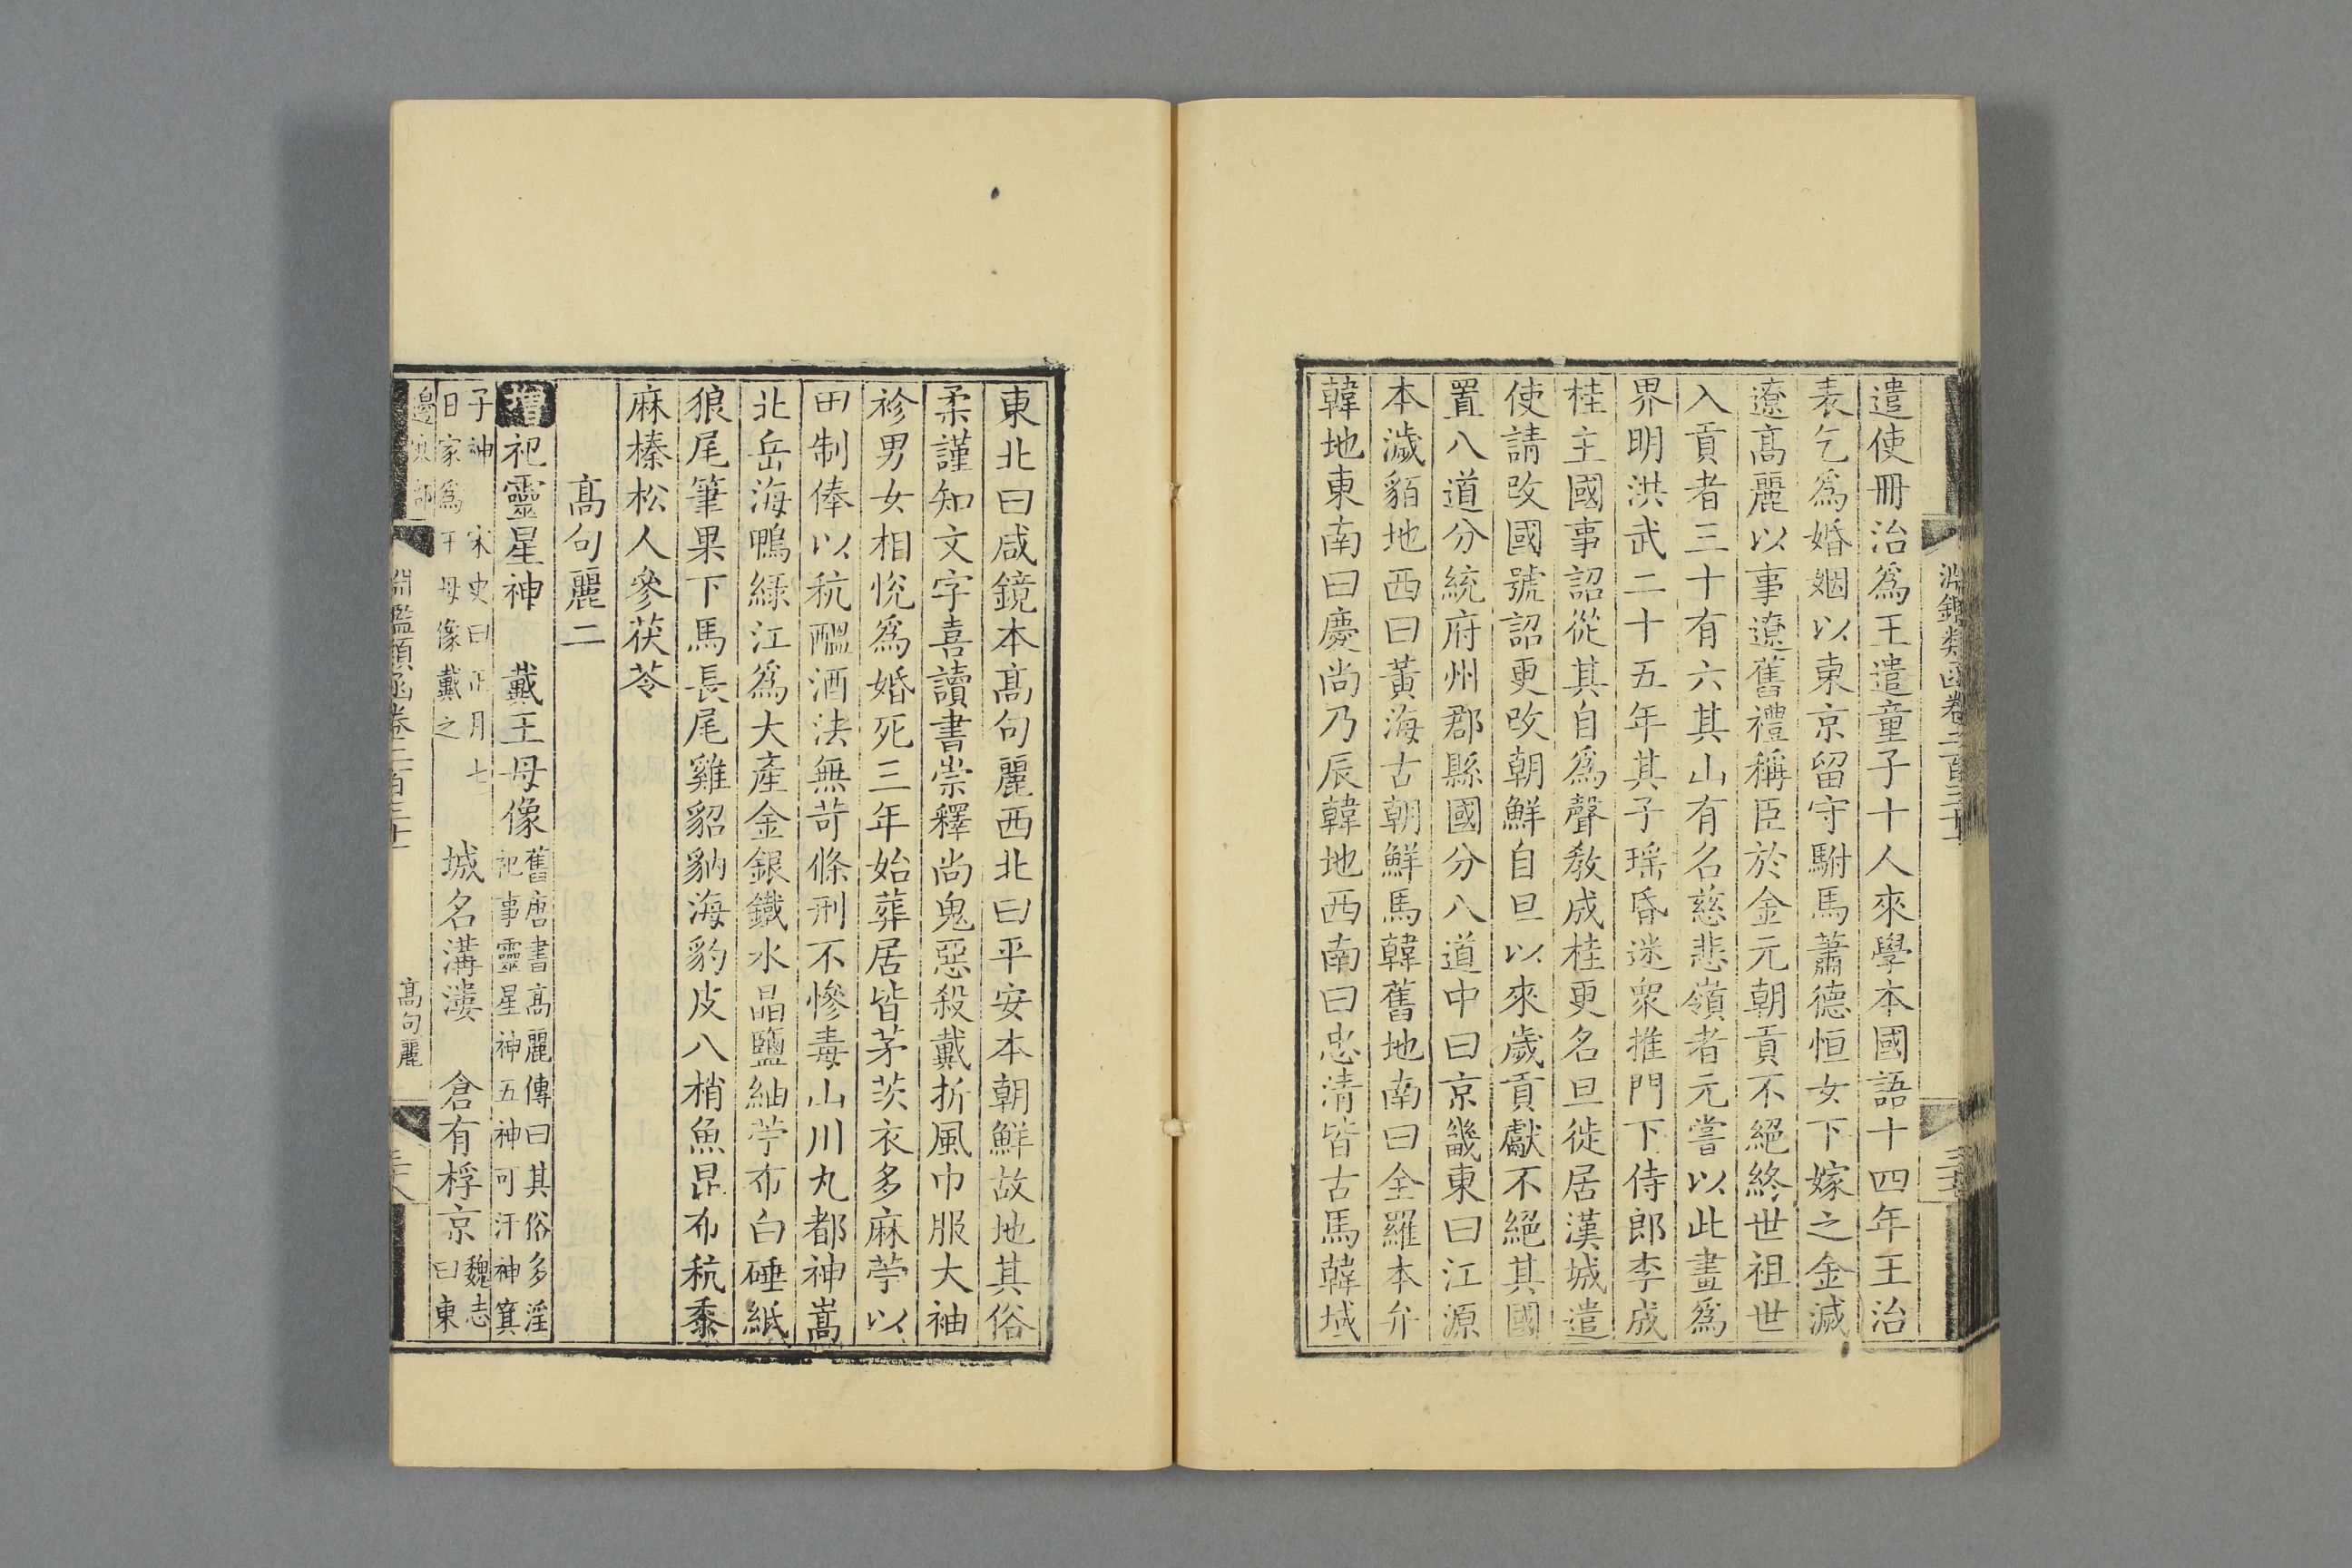 淵鑑類函卷二百三十
遣使冊治爲王遣童子十人來學本國語十四年王治
表乞爲婚姻以東京留守駙馬蕭德恒女下嫁之金滅
遼高麗以事遼舊禮稱臣於金元朝貢不絕終世祖世
入貢者三十有六其山有名慈悲嶺者元嘗以此畫爲
界明洪武二十五年其子瑤昏迷衆推門下侍郎李成
桂主國事詔從其自爲聲教成桂更名旦徙居漢城遣
使請改國號詔更改朝鮮自旦以來歲貢獻不絕其國
置八道分統府州郡縣國分八道中曰京畿東曰江源
本濊貊地西曰黃海古朝鮮馬韓舊地南曰全羅本弁
韓地東南曰慶尚乃辰韓地西南曰忠清皆古馬韓域
東北曰咸鏡本高句麗西北曰平安本朝鮮故地其俗
柔謹知文字喜讀書崇釋尚鬼惡殺戴折風巾服大袖
衫男女相悅爲婚死三年始葬居皆茅茨衣多麻苧以
田制俸以秔醞酒法無苛條刑不慘毒山川丸都神嵩
北岳海鴨綠江爲大產金銀鐵水晶鹽紬苧布白硾紙
狼尾筆果下馬長尾雞貂豽海豹皮八梢魚昆布秔黍
麻榛松人參茯苓
高句麗二
增祀靈星神 戴王母像 舊唐書高麗傳曰其俗多淫
祀事靈星神五神可汗神箕
子神 宋史曰正月七
日家爲王母像戴之 城名溝漊 倉有桴京 魏志
曰東
邊塞部
淵鑑類函卷二百三十 高句麗 三十八